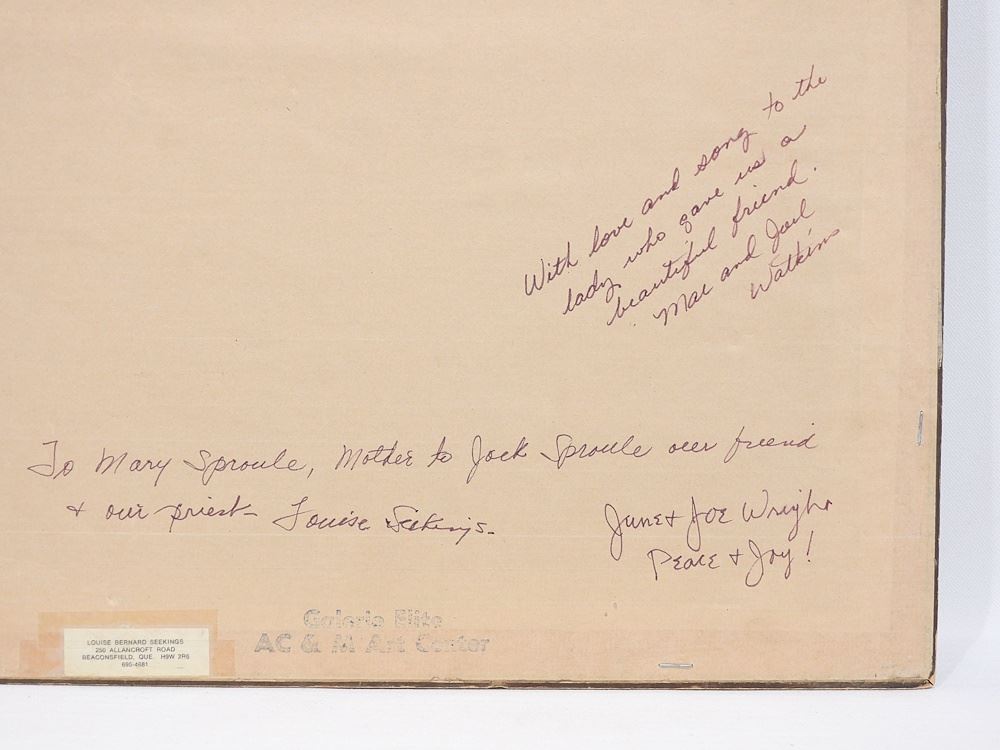 With love and song to the
lady who gave us a
beautiful friend.
Mae and Joel
Watkins
To Mary Sproule, Mother to Jack Sproule our friend
& our priest - Louise Seekings.
June & Joe Wright
Peace & Joy!
Galerie Elite
AC & M Art Center
LOUISE BERNARD SEEKINGS
250 ALLANCROFT ROAD
BEACONSFIELD, QUE. H9W 2R6
695-4681